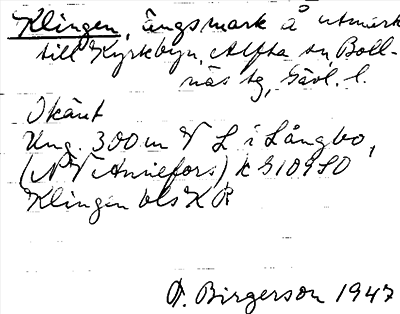 Klingen, ängsmark å utmark
till Kyrkbyn, Alfta sn, Boll-
näs tg, Gävl. l.
Okänt
Ung. 300 m V L i Långbo,
(N V Annefors) k G109SO
Klingen bls K R
F. Birgerson 1947